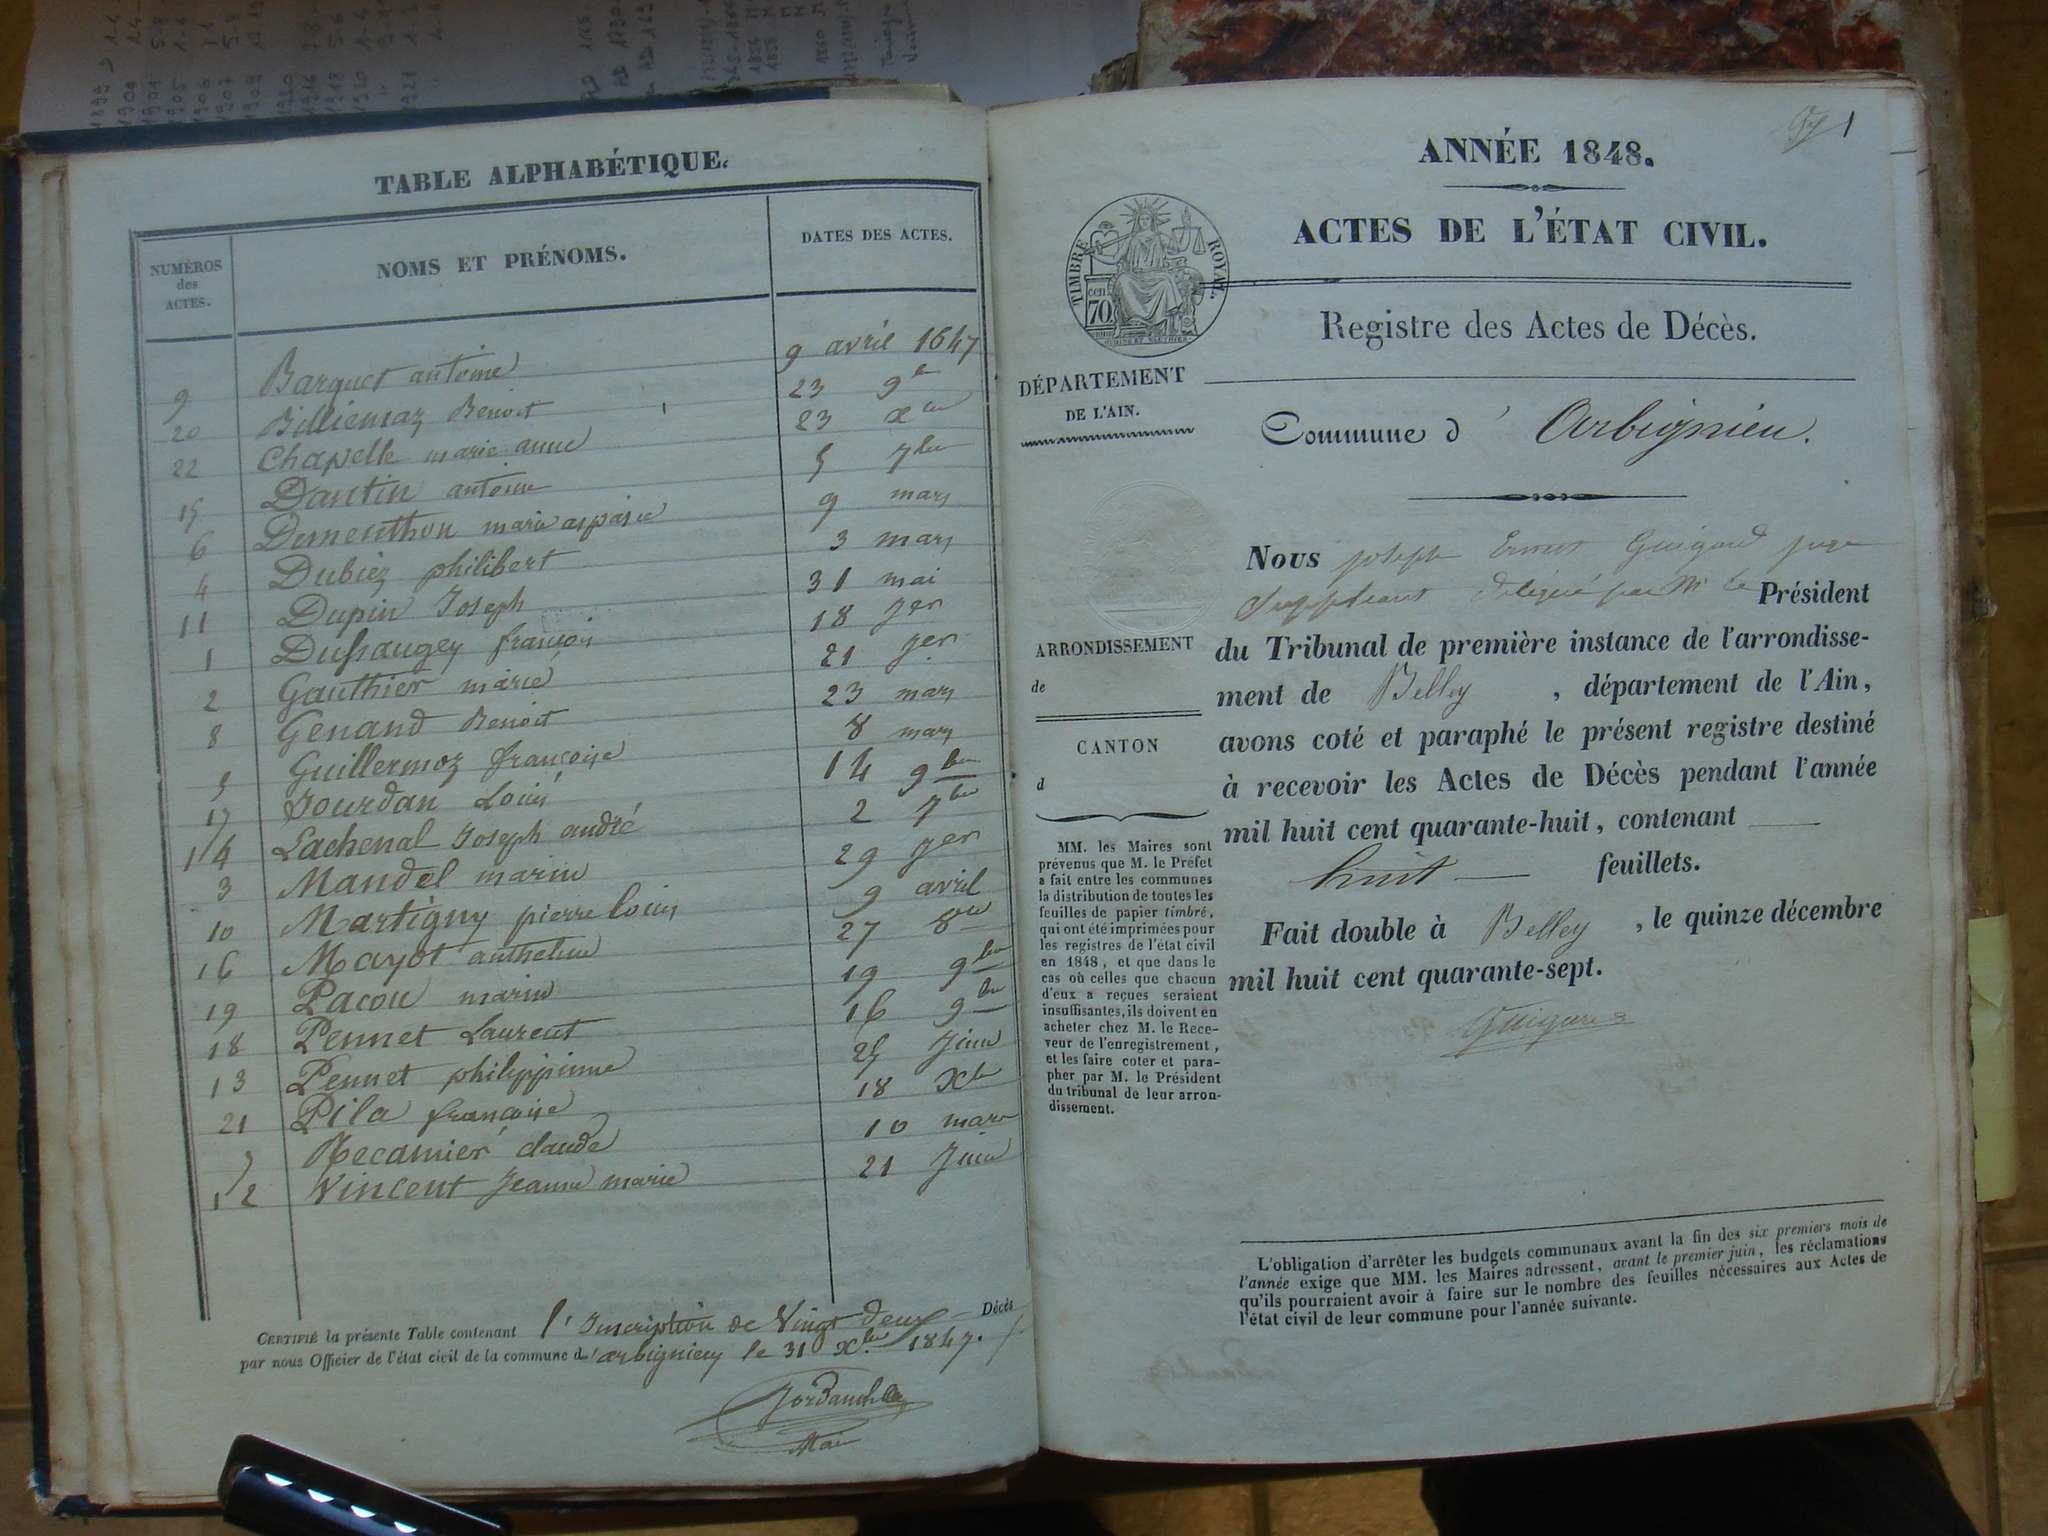 TABLE ALPHABÉTIQUE.
NUMÉROS des ACTES.
NOMS ET PRÉNOMS.
DATES DES ACTES.
9 Barquet antoine 9 avril 1847
20 Billiemaz Benoit 23 9bre
22 Chapelle marie anne 23 xbre
15 Dantin antoine 5 7bre
6 Dementhon marie aspasie 9 mars
4 Dubiez philibert 3 mars
11 Dupin Joseph 31 mai
1 Dussaugey françois 18 Jer
2 Gauthier marie 21 Jer
8 Genand Benoit 23 mars
5 Guillermoz françoise 8 mars
17 Jourdan Louis 14 9bre
14 Lachenal Joseph andré 2 7bre
3 Mandel marin 29 Jer
10 Martigny pierre louis 9 avril
16 Mayot anthelme 27 8bre
19 Pacou marin 19 9bre
18 Pennet Laurent 16 9bre
13 Pennet philippine 25 Juin
21 Pila françoise 18 Xbre
7 Recamier claude 10 mars
12 Vincent Jeanne marie 21 Juin
CERTIFIÉ la présente Table contenant l'Inscription de Vingt deux Décès
par nous Officier de l'état civil de la commune d'arbignieu le 31 xbre 1847.
1
ANNÉE 1848.
ACTES DE L'ÉTAT CIVIL.
TIMBRE ROYAL.
70 cen
Registre des Actes de Décès.
DÉPARTEMENT
DE L'AIN.
Commune d' Arbignieu.
Nous joseph Ernest Guigard juge
Suppléant délégué par Mr le Président
du Tribunal de première instance de l'arrondisse-
ment de Belley, département de l'Ain,
avons coté et paraphé le présent registre destiné
à recevoir les Actes de Décès pendant l'année
mil huit cent quarante-huit, contenant
huit feuillets.
Fait double à Belley, le quinze décembre
mil huit cent quarante-sept.
Guigard
ARRONDISSEMENT
de
CANTON
d
MM. les Maires sont
prévenus que M. le Préfet
a fait entre les communes
la distribution de toutes les
feuilles de papier timbré,
qui ont été imprimées pour
les registres de l'état civil
en 1848, et que dans le
cas où celles que chacun
d'eux a reçues seraient
insuffisantes, ils doivent en
acheter chez M. le Rece-
veur de l'enregistrement,
et les faire coter et para-
pher par M. le Président
du tribunal de leur arron-
dissement.
L'obligation d'arrêter les budgets communaux avant la fin des six premiers mois de
l'année exige que MM. les Maires adressent, avant le premier juin, les réclamations
qu'ils pourraient avoir à faire sur le nombre des feuilles nécessaires aux Actes de
l'état civil de leur commune pour l'année suivante.